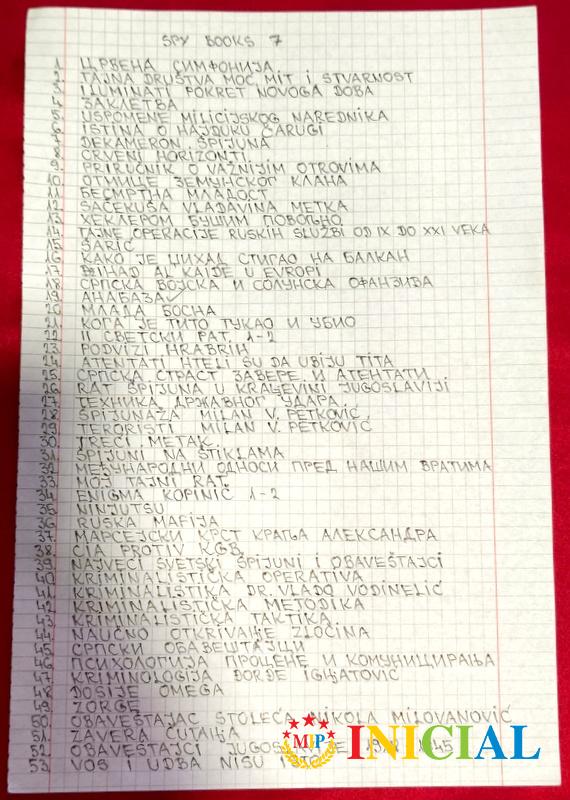 SPY BOOKS 7
1. ЦРВЕНА СИМФОНИЈА
2. TAJNA DRUŠTVA MOĆ MIT i STVARNOST
3. ILUMINATI POKRET NOVOGA DOBA
4. ЗАКЛЕТВА
5. USPOMENE MILICIJSKOG NAREDNIKA
6. ISTINA O HAJDUKU ČARUGI
7. DEKAMERON ŠPIJUNA
8. CRVENI HORIZONTI
9. PRIRUČNIK O VAŽNIJIM OTROVIMA
10. ОТМИЦЕ ЗЕМУНСКОГ КЛАНА
11. БЕСМРТНА МЛАДОСТ
12. SAČEKUŠA VLADAVINA METKA
13. ХЕКЛЕРОМ БУШИМ ПОВОЉНО
14. TAJNE OPERACIJE RUSKIH SLUŽBI OD IX DO XXI VEKA
15. ŠARIĆ
16. КАКО ЈЕ ЏИХАД СТИГАО НА БАЛКАН
17. DŽIHAD AL KAIDE U EVROPI
18. СРПСКА ВОЈСКА И СОЛУНСКА ОФАНЗИВА
19. АНАБАЗА
20. МЛАДА БОСНА
21. КОГА ЈЕ ТИТО ТУКАО И УБИО
22. II СВЕТСКИ РАТ. 1-2
23. PODVIZI HRABRIH
24. ATENTATI HTELI SU DA UBIJU TITA
25. СРПСКА СТРАСТ ЗАВЕРЕ И АТЕНТАТИ
26. RAT ŠPIJUNA U KRALJEVINI JUGOSLAVIJI
27. ТЕХНИКА ДРЖАВНОГ УДАРА
28. ŠPIJUNAŽA MILAN V. PETKOVIĆ
29. TERORISTI MILAN V. PETKOVIĆ
30. TREĆI METAK
31. ŠPIJUNI NA ŠTIKLAMA
32. МЕЂУНАРОДНИ ОДНОСИ ПРЕД НАШИМ ВРАТИМА
33. MOJ TAJNI RAT.
34. ENIGMA KOPINIČ 1-2
35. NINJUTSU
36. RUSKA MAFIJA
37. МАРСЕЈСКИ КРСТ КРАЉА АЛЕКСАНДРА
38. CIA PROTIV KGB
39. NAJVEĆI SVETSKI ŠPIJUNI I OBAVEŠTAJCI
40. KRIMINALISTIČKA OPERATIVA
41. KRIMINALISTIKA DR. VLADO VODINELIĆ
42. KRIMINALISTIČKA METODIKA
43. KRIMINALISTIČKA TAKTIKA
44. NAUČNO OTKRIVANJE ZLOČINA
45. СРПСКИ ОБАВЕШТАЈЦИ
46. ПСИХОЛОГИЈА ПРОЦЕНЕ И КОМУНИЦИРАЊА
47. KRIMINOLOGIJA ĐORĐE IGNJATOVIĆ
48. DOSIJE OMEGA
49. ZORGE
50. OBAVEŠTAJAC STOLEĆA NIKOLA MILOVANOVIĆ
51. ZAVERA ĆUTANJA
52. OBAVEŠTAJCI
53. VOS I UDBA NISU
MIP INICIAL